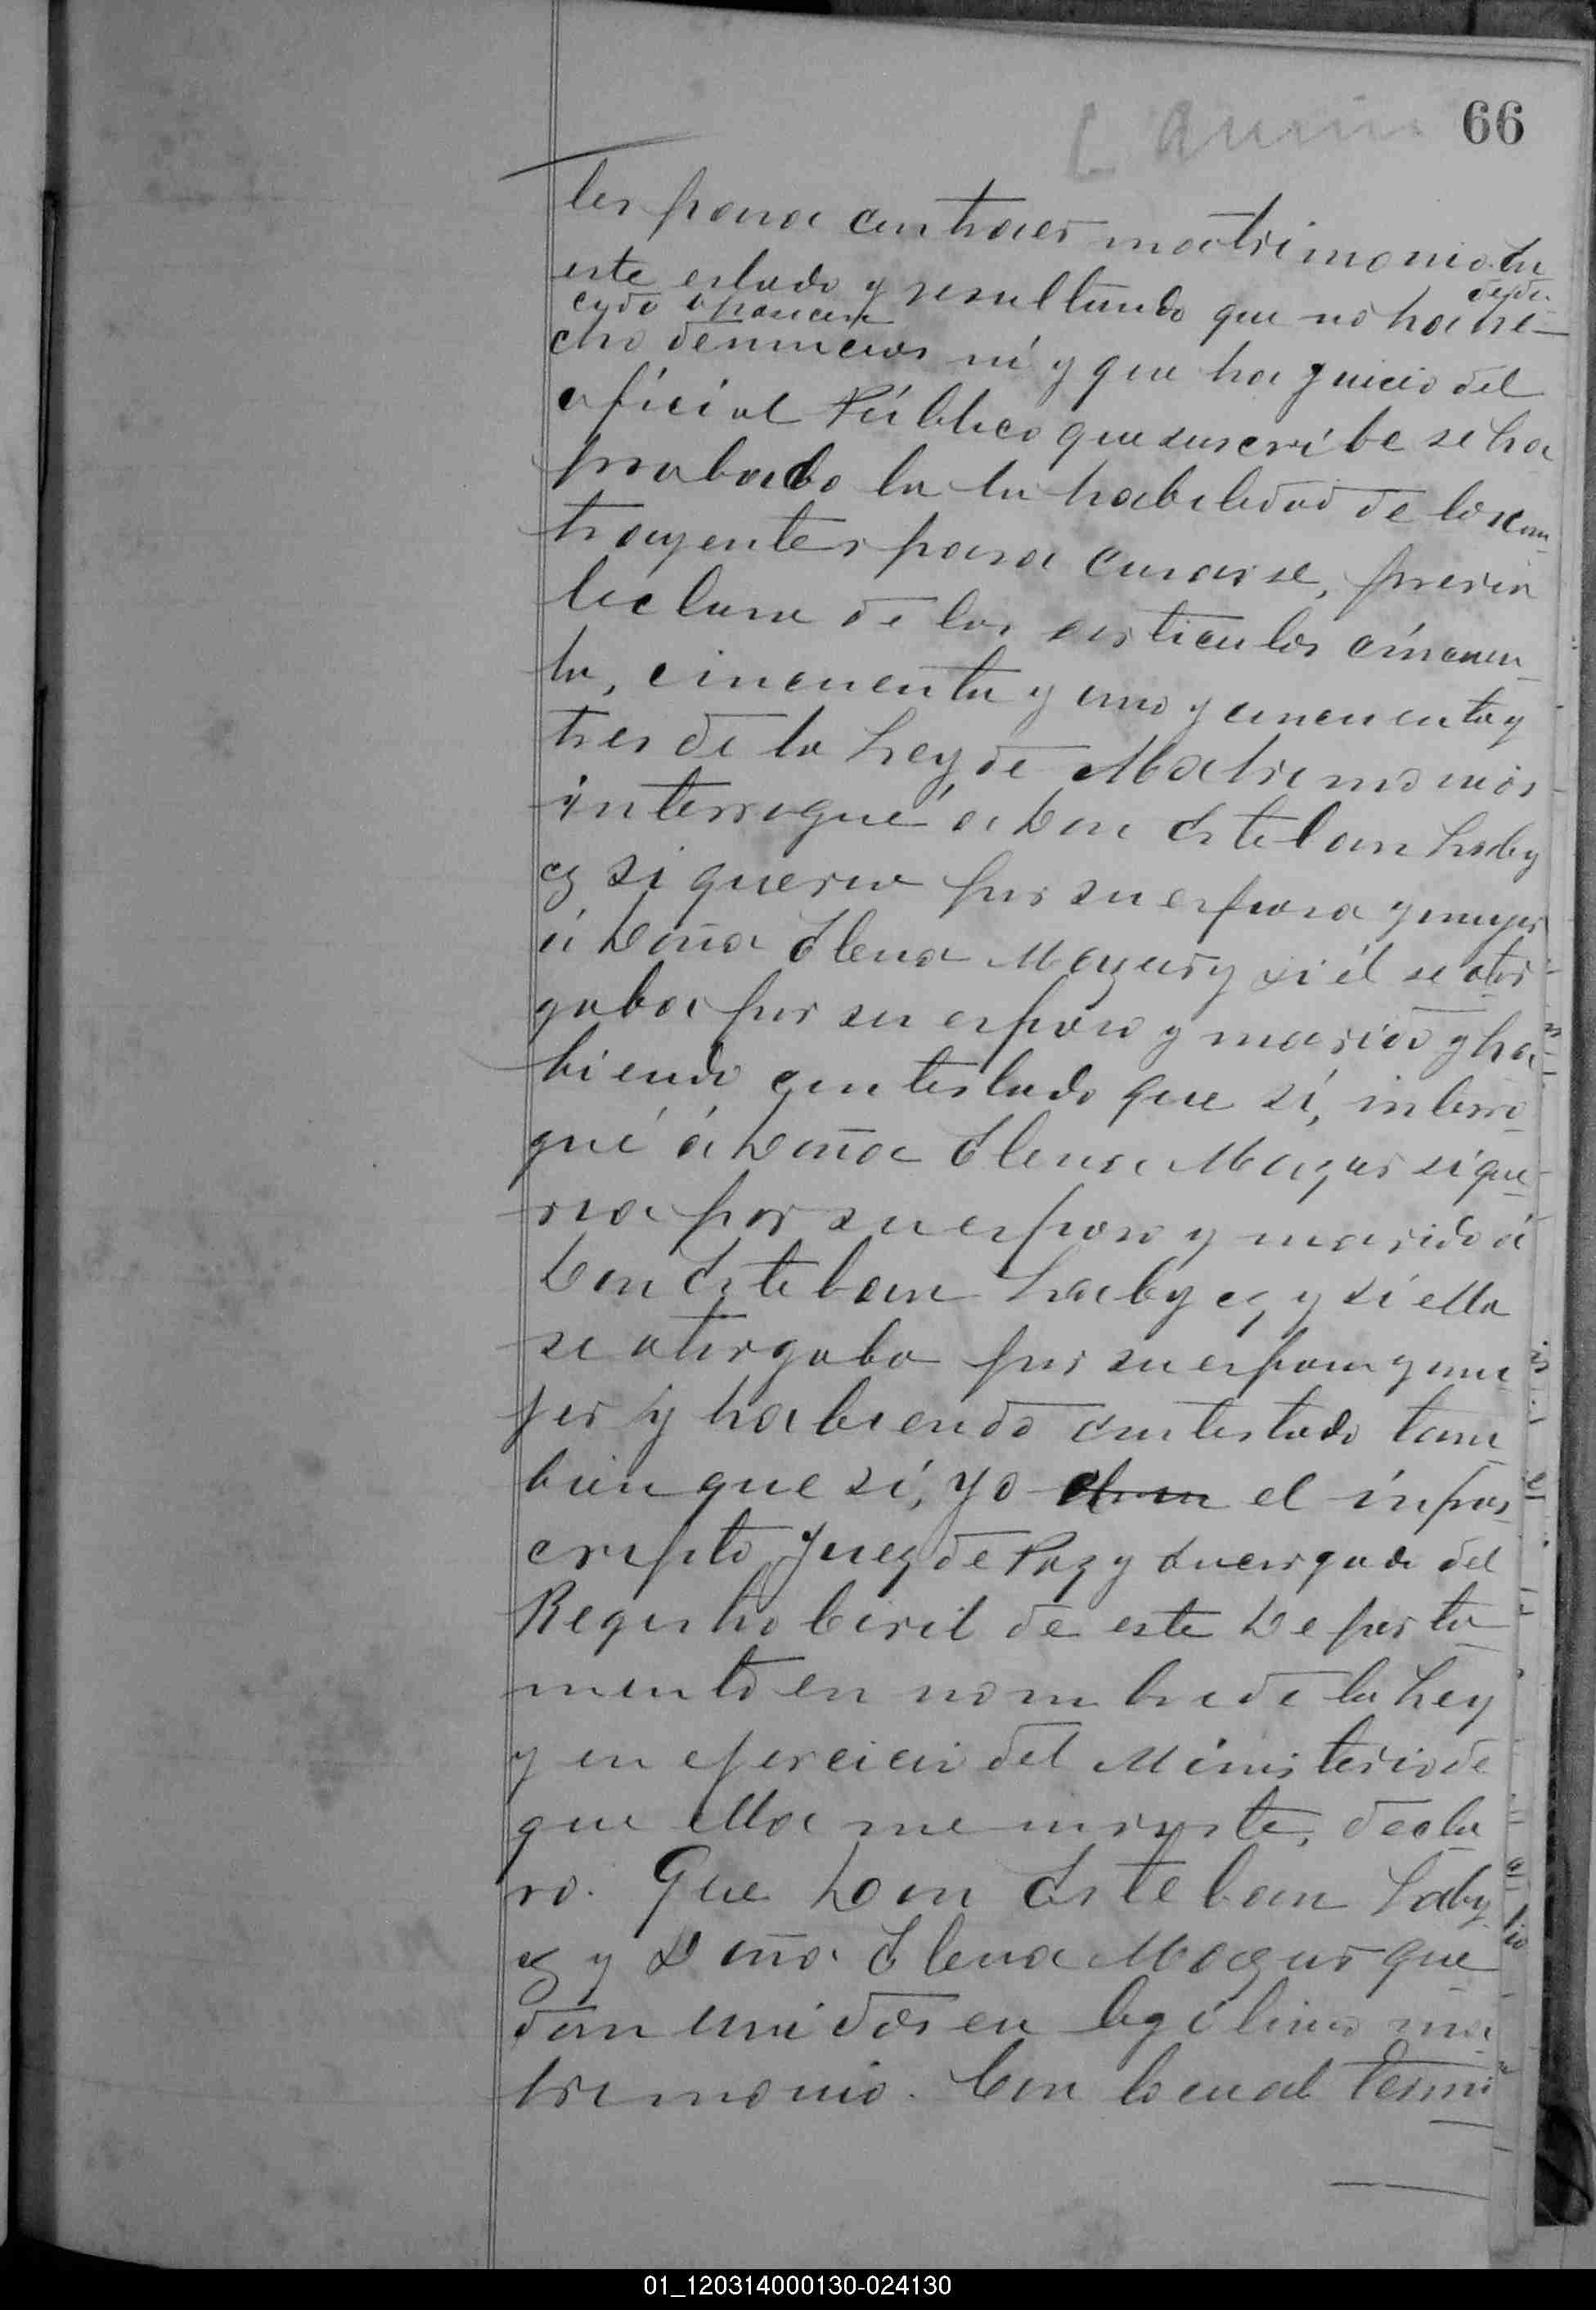 66
les para contraer matrimonio. En
este estado y resultando que no ha he
dedu
cido oposicion
cho denuncias ni y que ha juicio del
oficial Público que suscribe se ha
probado la in habilidad de los con
trayentes para casarse, previa
lectura de los articulos cincuen
ta, cincuenta y uno y cincuenta y
tres de la Ley de Matrimonios
interrogué a Don Esteban Laby
ez si queria por su esposa y mujer
á Doña Elena Mazur y si él se otor
gaba por su esposo y marido y ha
biendo contestado que sí, interro
gué á Doña Elena Mazur si que
ria por su esposo y marido á
Don Esteban Labyez y si ella
se otorgaba por su esposa y mu
jer y habiendo contestado tam
bien que sí, yo el infras
cripto Juez de Paz y Encargado del
Registro Civil de este Departa
mento en nombre de la Ley
y en ejercicio del Ministerio de
que ella me inviste, decla
ro. Que Don Esteban Laby
ez y Doña Elena Mazur que
dan unidos en legitimo ma
trimonio. Con lo cual termi
01_120314000130-024130